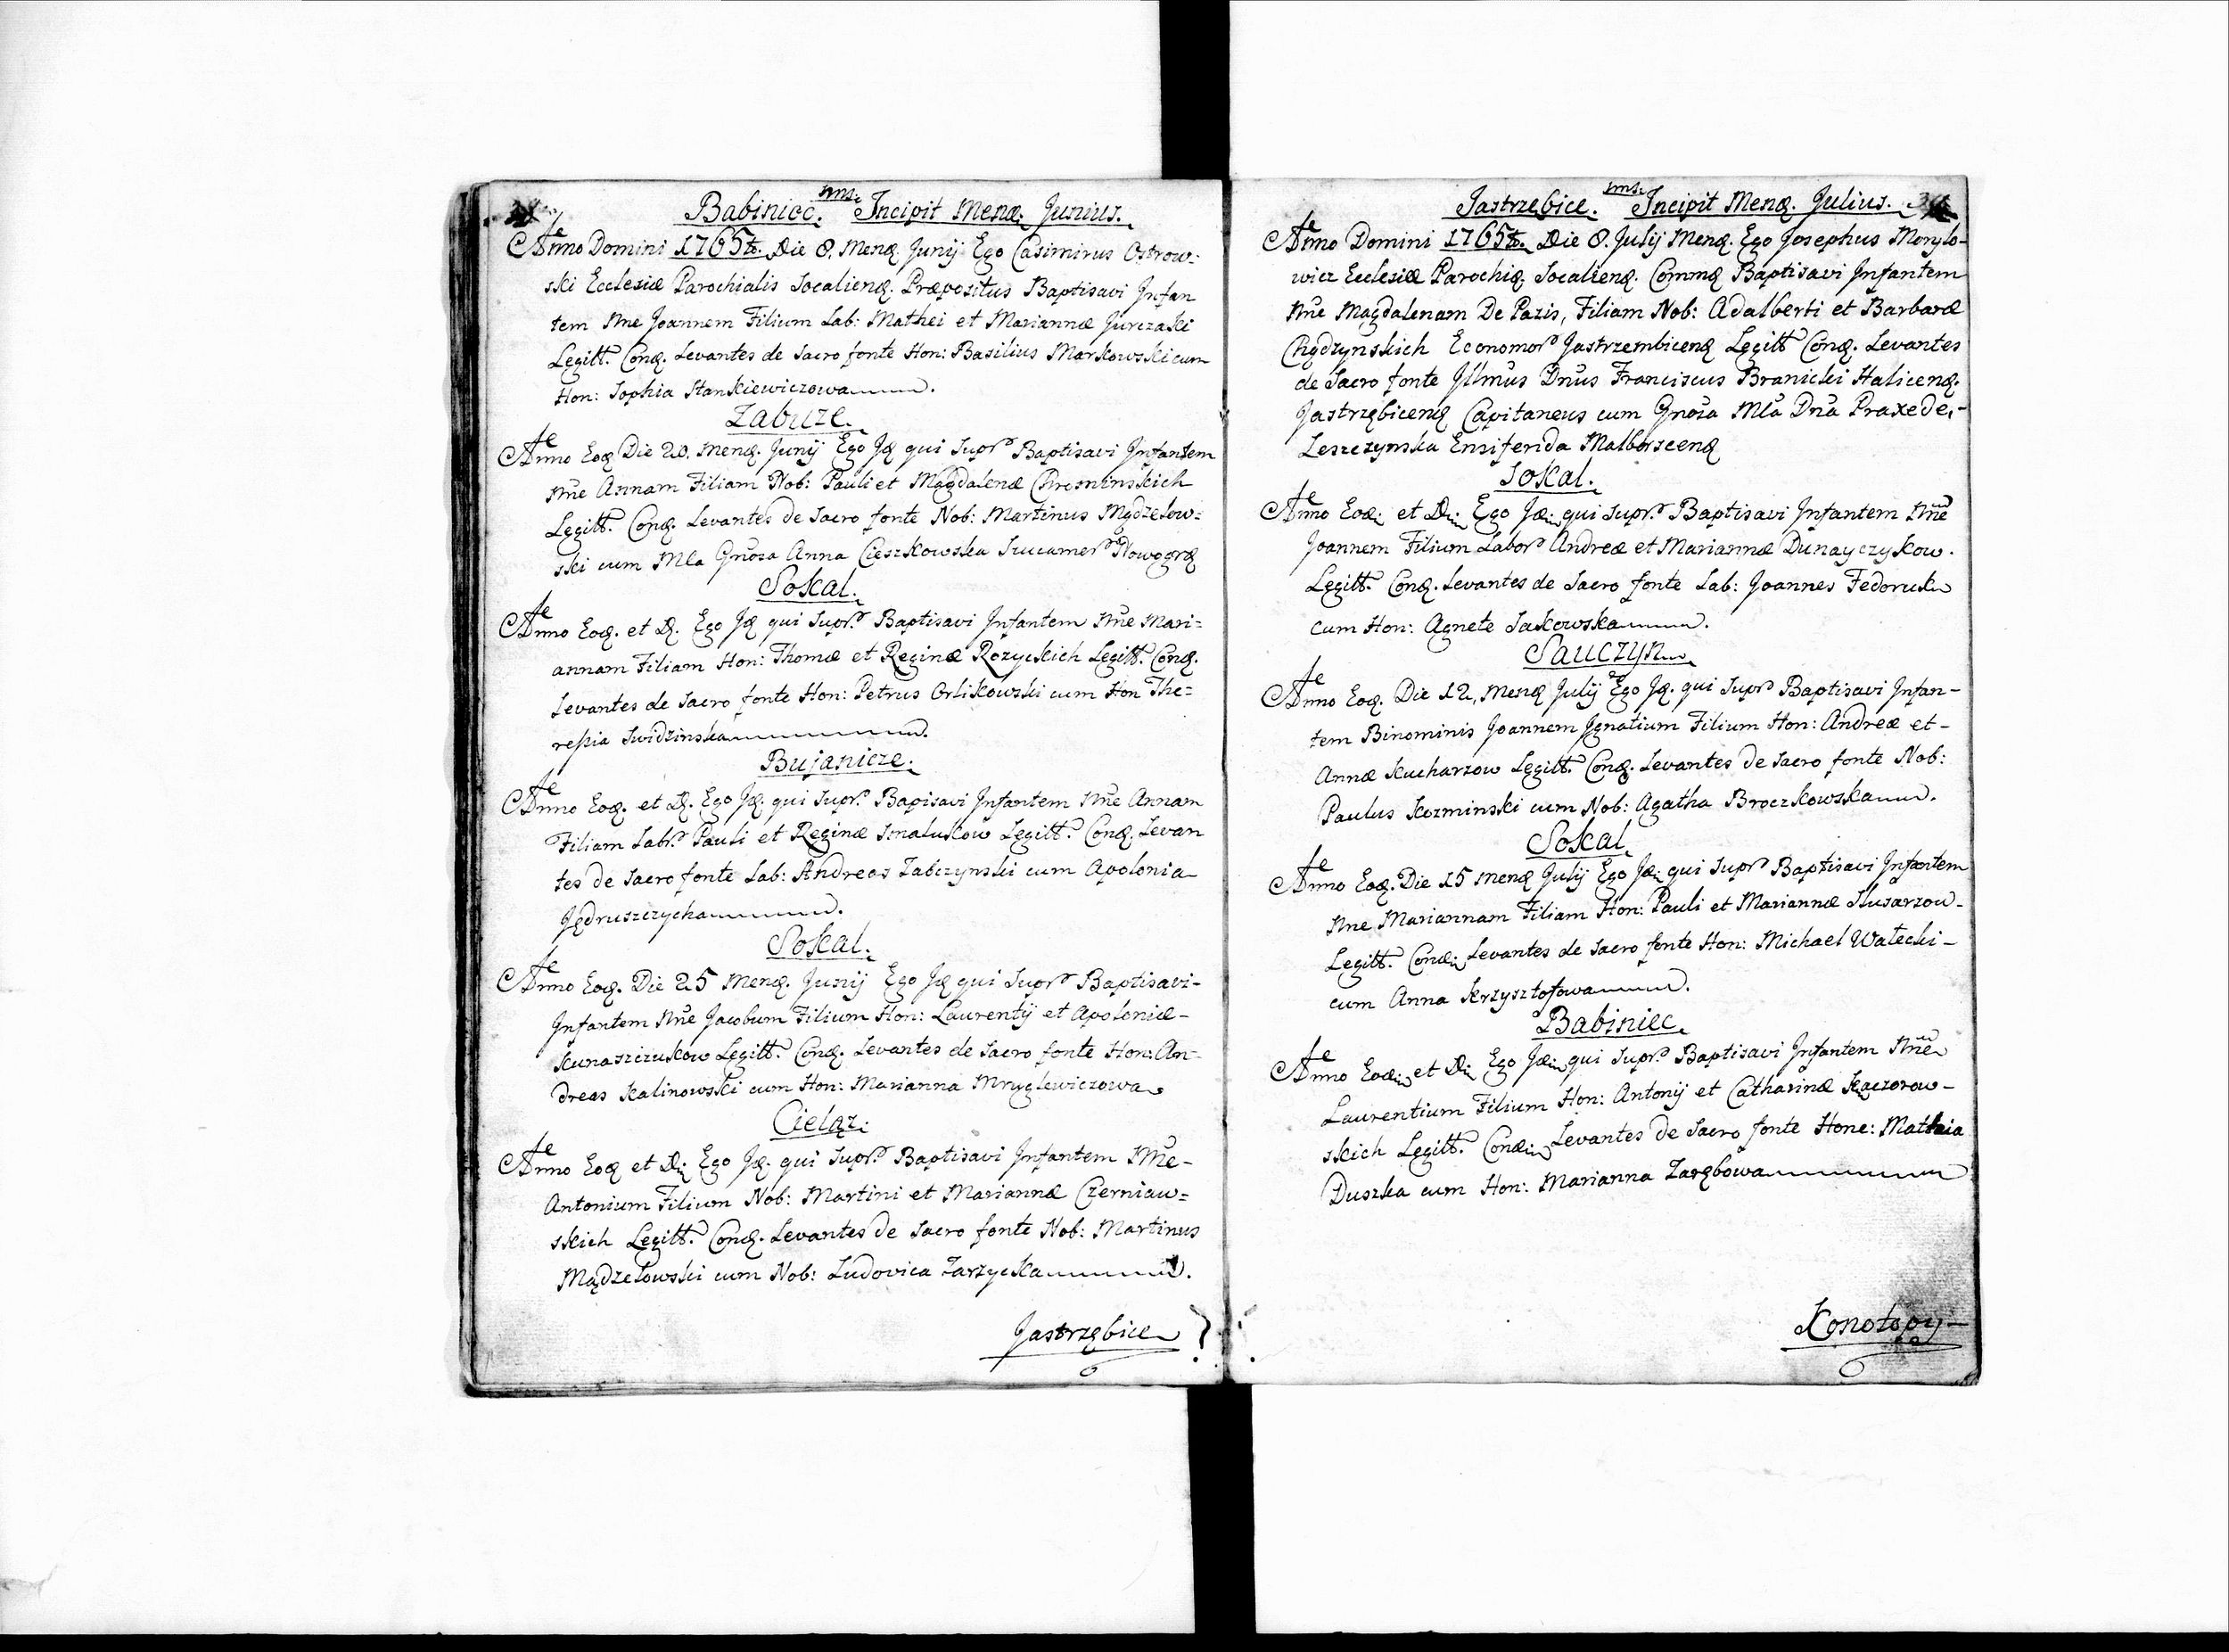 Babiniec. Incipit Mensꝫ. Junius.
Anno Domini 1765to. Die 8. Mensꝫ. Junij Ego Casimirus Ostrow-
ski Ecclesiæ Parochialis Socaliensꝫ. Præpositus Baptisavi Infan
tem Nñe Joannem Filium Lab: Mathei et Mariannæ Jurczaki
Legitt. Conꝫ. Levantes de Sacro fonte Hon: Basilius Markowski cum
Hon: Sophia Stankiewiczowa.
Zabuze.
Anno Eoꝫ Die 20. Mensꝫ. Junij Ego Jꝫ qui Supr. Baptisavi Infantem
Nñe Annam Filiam Nob: Pauli et Magdalenæ Chrosninskich
Legitt. Conꝫ. Levantes de Sacro fonte Nob: Martinus Mądzelow=
ski cum Mla Gnosa Anna Cieszkowska Nowogrꝫ
Sokal.
Anno Eoꝫ. et D. Ego Jꝫ qui Supr. Baptisavi Infantem Nñe Mari=
annam Filiam Hon: Thomæ et Reginæ Rozyckich Legitt. Conꝫ.
Levantes de Sacro fonte Hon: Petrus Orlikowski cum Hon The=
resia Swidzinska.
Bujanicze.
Anno Eoꝫ. et D. Ego Jꝫ. qui Supr. Bapisavi Infantem Nñe Annam
Filiam Labr. Pauli et Reginæ Smalukow Legitt. Conꝫ. Levan
tes de Sacro fonte Lab: Andreas Zabczynski cum Apolonia
Jędruszczycha.
Sokal.
Anno Eoꝫ. Die 25 Mensꝫ. Junij Ego Jꝫ qui Supr. Baptisavi-
Infantem Nñe Jacobum Filium Hon: Laurentij et Apoloniæ-
Kunaszczukow Legitt. Conꝫ. Levantes de Sacro fonte Hon: An-
dreas Kalinowski cum Hon: Marianna Mryglewiczowa
Cieląz.
Anno Eoꝫ et D. Ego Jꝫ. qui Supr. Baptisavi Infantem Nñe-
Antonium Filium Nob: Martini et Mariannæ Czerniaw=
skich Legitt. Conꝫ. Levantes de Sacro fonte Nob: Martinus
Mądzelowski cum Nob: Ludovica Zarzycka.
Jastrzębice
Jastrzębice. Incipit Mensꝫ. Julius.
Anno Domini 1765to. Die 8. Julij Mensꝫ. Ego Josephus Monylo-
wicz Ecclesiæ Parochiꝫ. Socaliensꝫ. Commꝫ Baptisavi Infantem
Nñe Magdalenam De Pazis, Filiam Nob: Adalberti et Barbaræ
Chądzynskich Economor Jastrzembicensꝫ Legitt Conꝫ. Levantes
de Sacro fonte Jllmus Dnus Franciscus Branicki Halicensꝫ.
Jastrzębicensꝫ Capitaneus cum Gnosa Mla Dna Praxede,-
Leszczynska Ensiferida Malborscensꝫ
Sokal.
Anno Eoꝫ. et D. Ego Jꝫ. qui Supr. Baptisavi Infantem Nñe
Joannem Filium Labor Andreæ et Mariannæ Dunayczykow.
Legitt. Conꝫ. Levantes de Sacro fonte Lab: Joannes Fedoruk
cum Hon: Agnete Sakowska.
Sauczyn
Anno Eoꝫ. Die 12, Mensꝫ Julij Ego Jꝫ. qui Supr Baptisavi Infan-
tem Binominis Joannem Ignatium Filium Hon: Andreæ et-
Annæ Kucharzow Legitt. Conꝫ. Levantes de Sacro fonte Nob:
Paulus Kozminski cum Nob: Agatha Broczkowska.
Sokal.
Anno Eoꝫ. Die 15 Mensꝫ Julij Ego Jꝫ. qui Supr Baptisavi Infantem
Nñe Mariannam Filiam Hon: Pauli et Mariannæ Slusarzow-
Legitt. Conꝫ. Levantes de Sacro fonte Hon: Michael Walecki-
cum Anna Krzysztofowa.
Babiniec.
Anno Eoꝫ. et D. Ego Jꝫ. qui Supr. Baptisavi Infantem Nñe
Laurentium Filium Hon: Antonij et Catharinæ Kaczorow-
skich Legitt. Conꝫ. Levantes de Sacro fonte Hone: Mathia
Duszka cum Hon: Marianna Zarębowa
Konotopy-